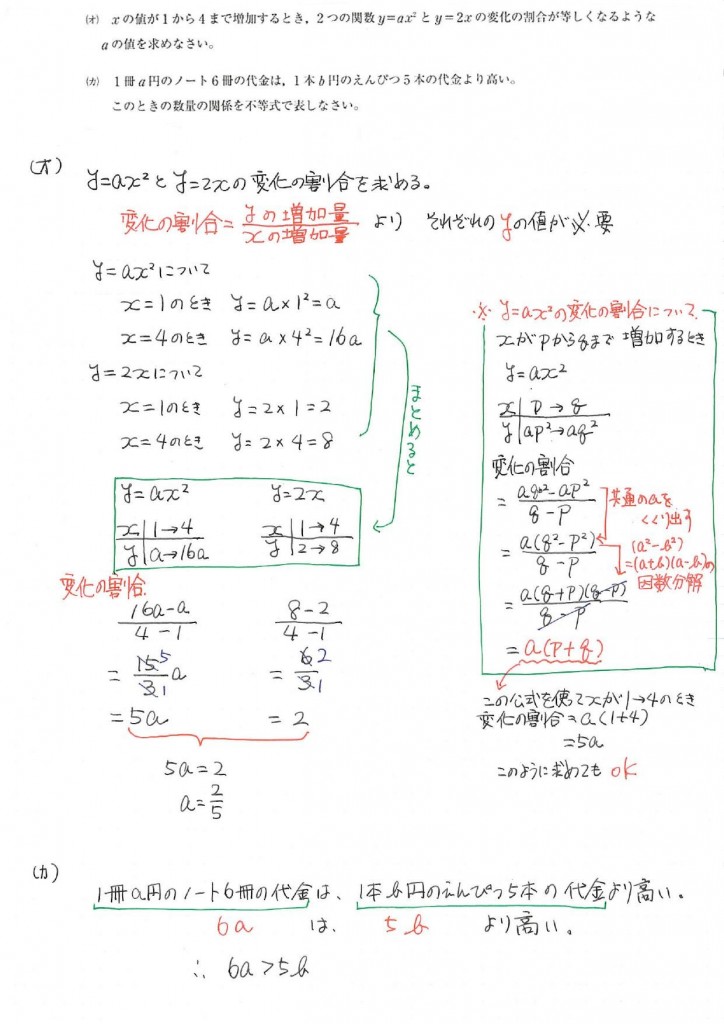 (オ) xの値が1から4まで増加するとき，2つの関数y=ax²とy=2xの変化の割合が等しくなるような
aの値を求めなさい。
(カ) 1冊a円のノート6冊の代金は，1本b円のえんぴつ5本の代金より高い。
このときの数量の関係を不等式で表しなさい。
(オ) y=ax²とy=2xの変化の割合を求める。
変化の割合=yの増加量/xの増加量 より それぞれのyの値が必要
y=ax²について
x=1のとき y=a×1²=a
x=4のとき y=a×4²=16a
y=2xについて
x=1のとき y=2×1=2
x=4のとき y=2×4=8
まとめると
y=ax² y=2x
x|1→4 x|1→4
y|a→16a y|2→8
変化の割合
16a-a/4-1 8-2/4-1
=15 5/3 1 a =6 2/3 1
=5a =2
5a=2
a=2/5
※ y=ax²の変化の割合について
xがpからqまで増加するとき
y=ax²
x|p→q
y|ap²→aq²
変化の割合
=aq²-ap²/q-p
共通のaを
くくり出す
=a(q²-p²)/q-p
(a²-b²)
=(a+b)(a-b)の
因数分解
=a(q+p)(q-p)/q-p
=a(p+q)
この公式を使ってxが1→4のとき
変化の割合=a(1+4)
=5a
このように求めても OK
(カ) 1冊a円のノート6冊の代金は、1本b円のえんぴつ5本の代金より高い。
6a は、 5b より高い。
∴ 6a>5b